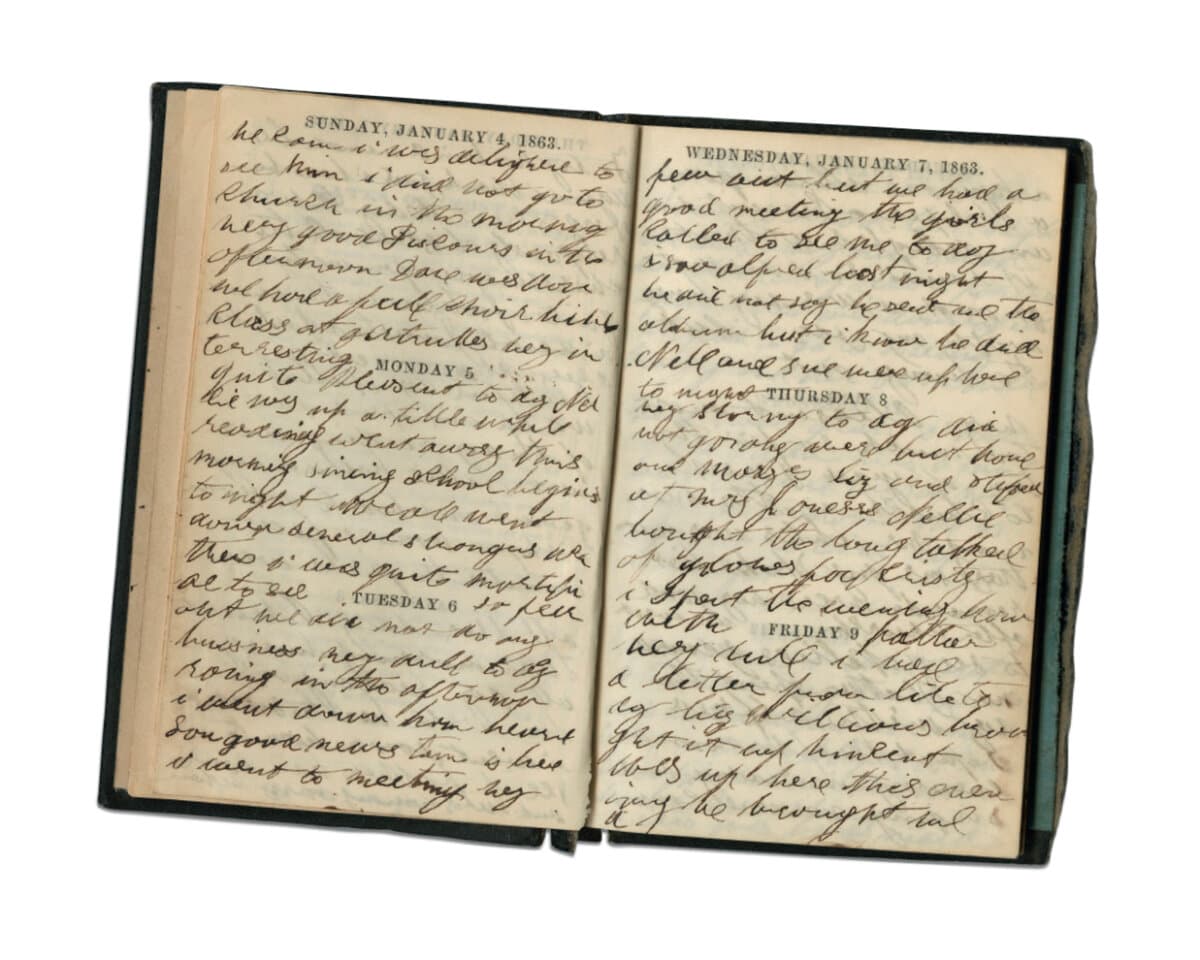 SUNDAY, JANUARY 4, 1863.
he com i was delighere to
see him i did not go to
church in the morning
very good Discours in the
afternoon Dave was down
we had a full choir
Class at gertrudes very in
terresting
MONDAY 5
quite Plesent to day Nel
lie was up a little while
reading went away this
morning sining School begins
to night went
down several strangers
there i was quite mortifi
ed to see so few
TUESDAY 6
out we did not do any
buisness very dull to day
in the afternoon
i went down hom heard
som good news tom is here
i went to meeting very
WEDNESDAY, JANUARY 7, 1863.
few out but we had a
good meeting the girls
Called to see me to day
i saw alfred last night
he did not say he sent me the
album but i know he did
Nell and sue were up here
to night
THURSDAY 8
very stormy to day did
not go any were but home
and liz and i stoped
at Mrs Jonesss Nellie
bought the long talked
of gloves for
i spent the evening home
with father
FRIDAY 9
very dull i had
a letter from to
ay liz Williams brou
ght it up
was up here this even
ing he brought
a